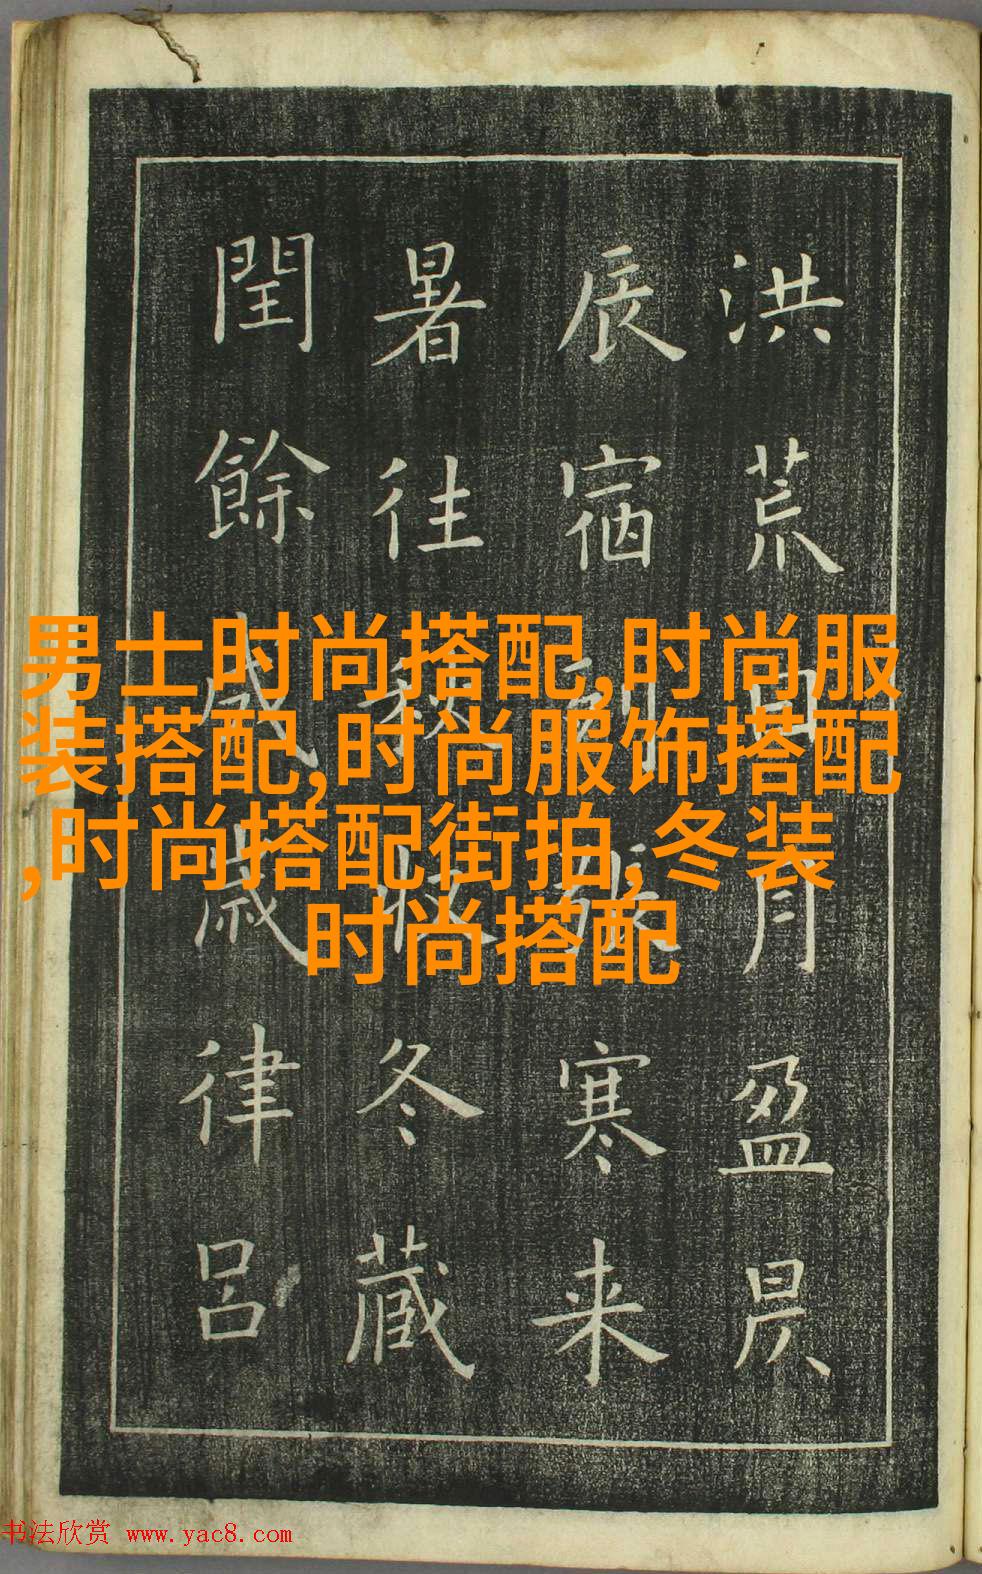 洪荒日月盈昃
辰宿列張寒来
暑往秋收冬藏
閏餘成歲律呂
男士时尚搭配,时尚服
装搭配,时尚服饰搭配
,时尚搭配街拍,冬装
时尚搭配
书法欣赏 www.yac8.com